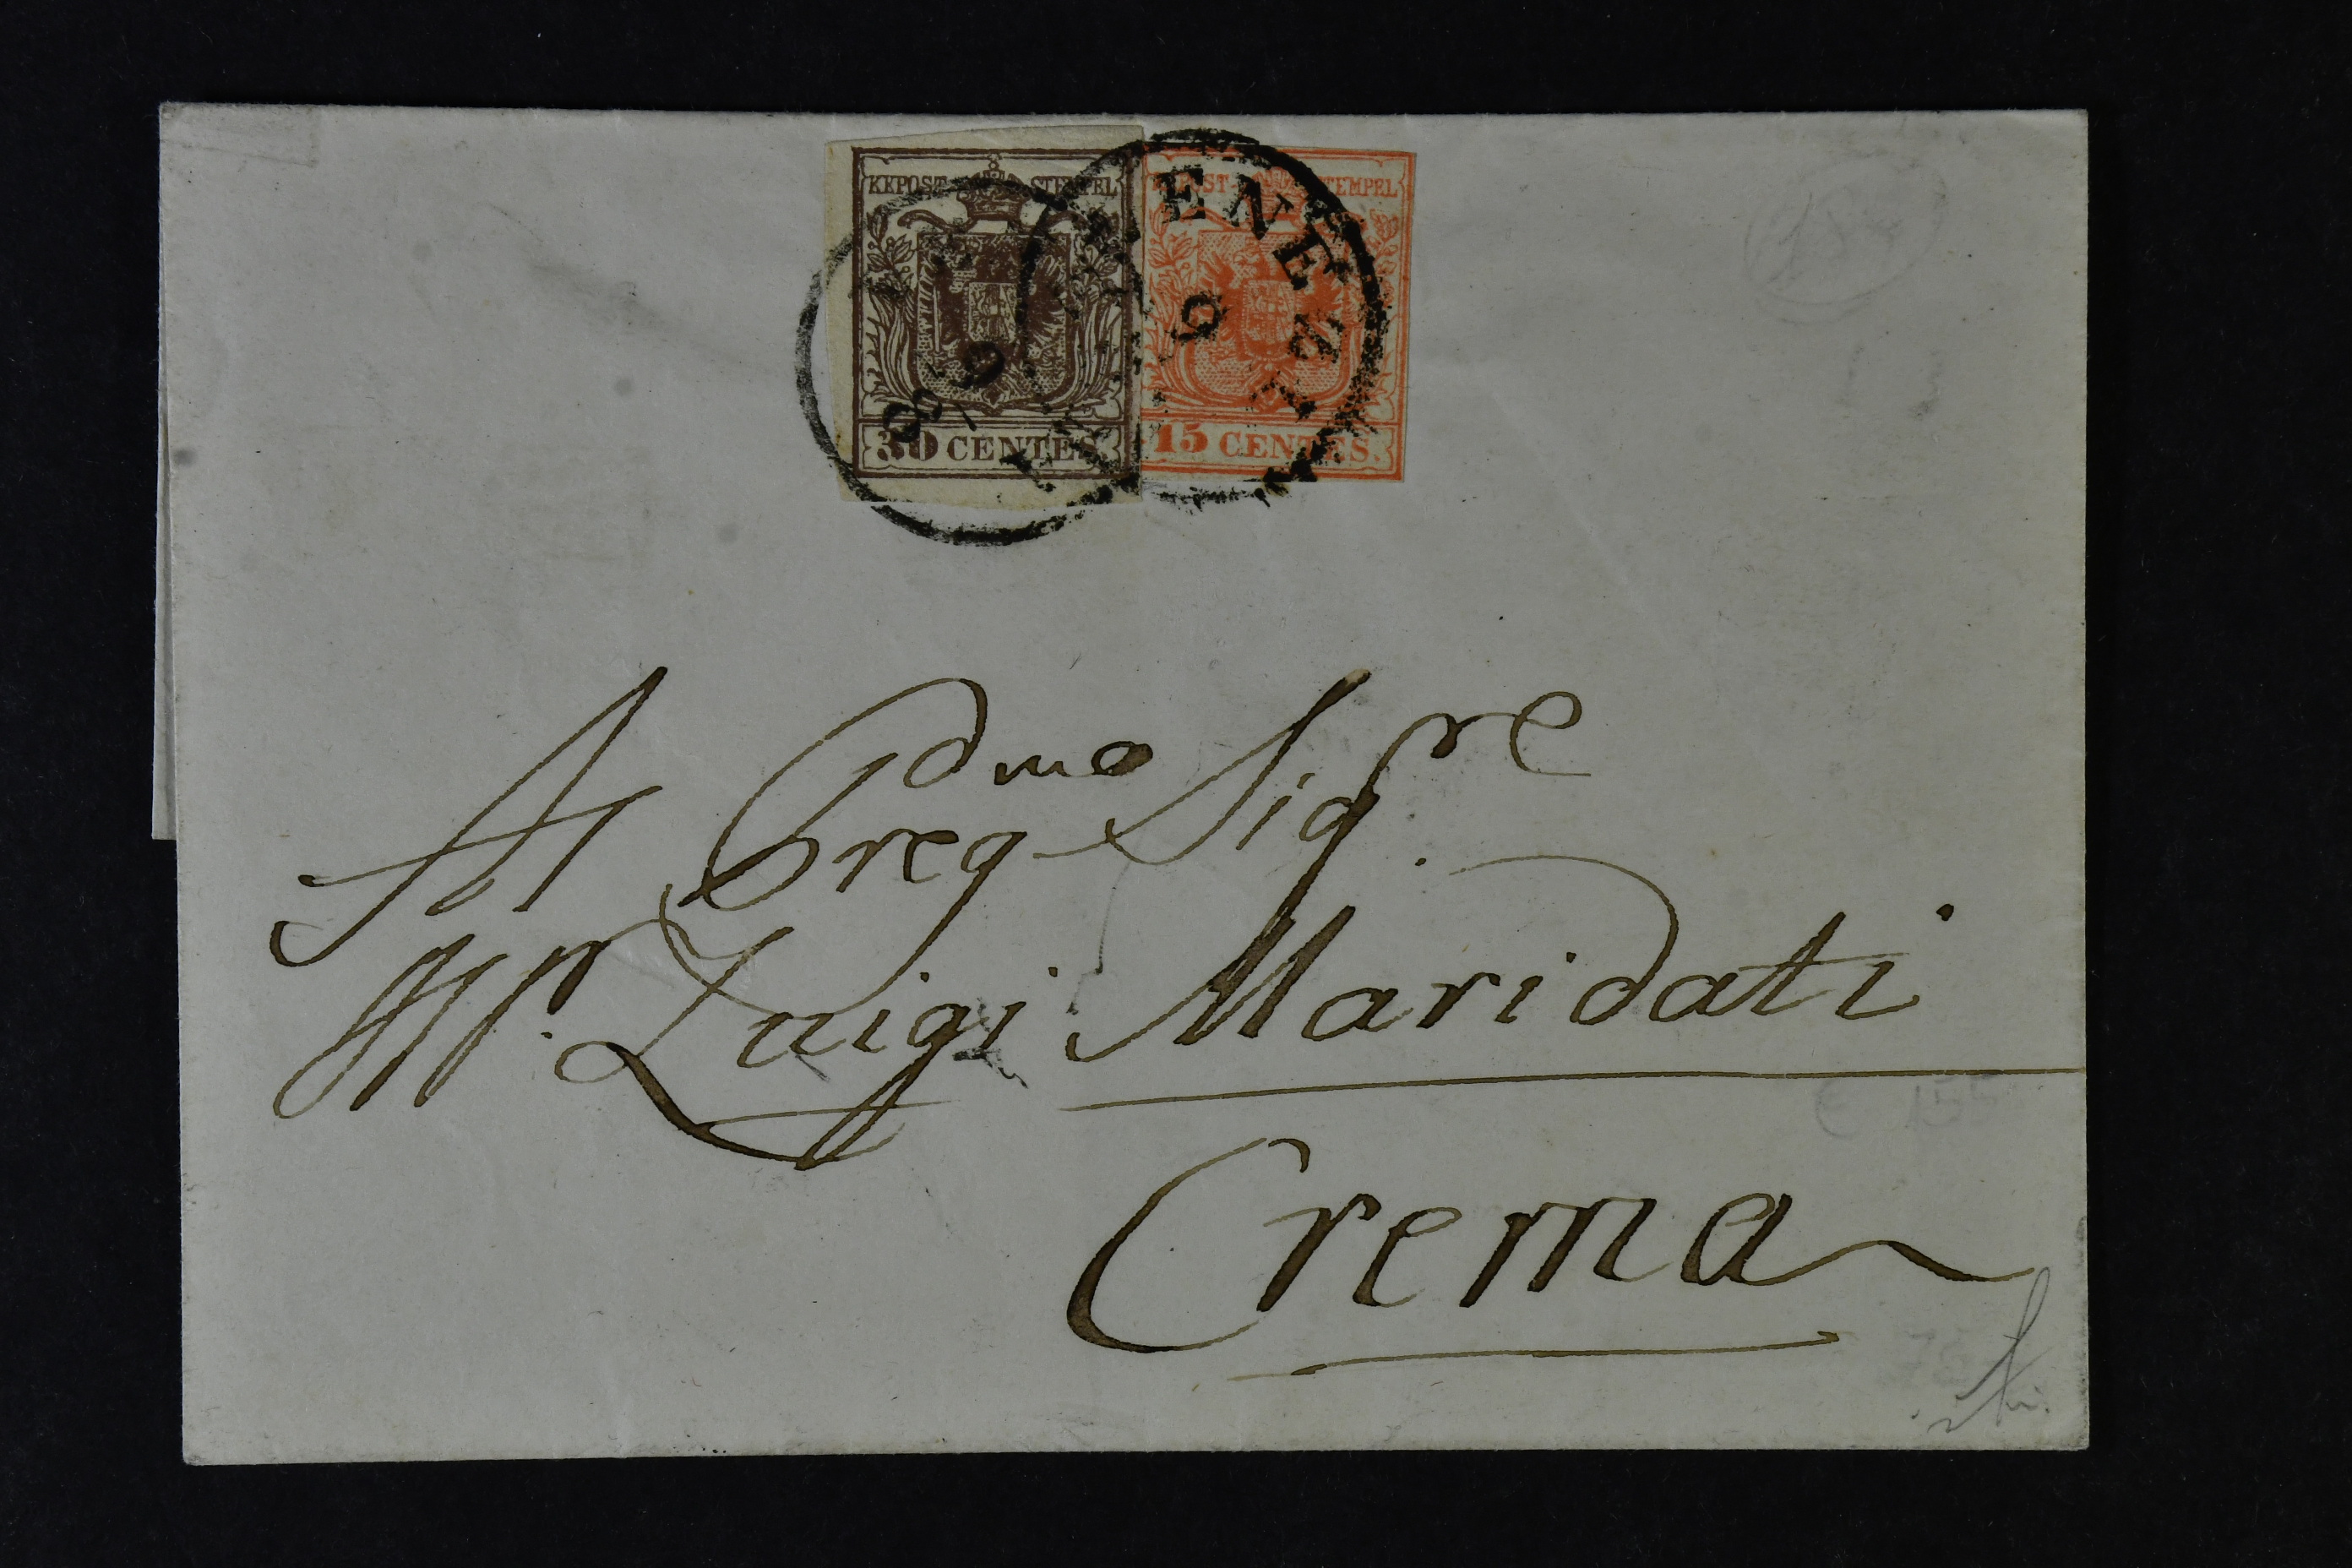 KKPOST STEMPEL
30 CENTES.
STEMPEL
15 CENTES.
VENEZIA
9
Al Pregmo Sigre
Luigi Maridati
Crema